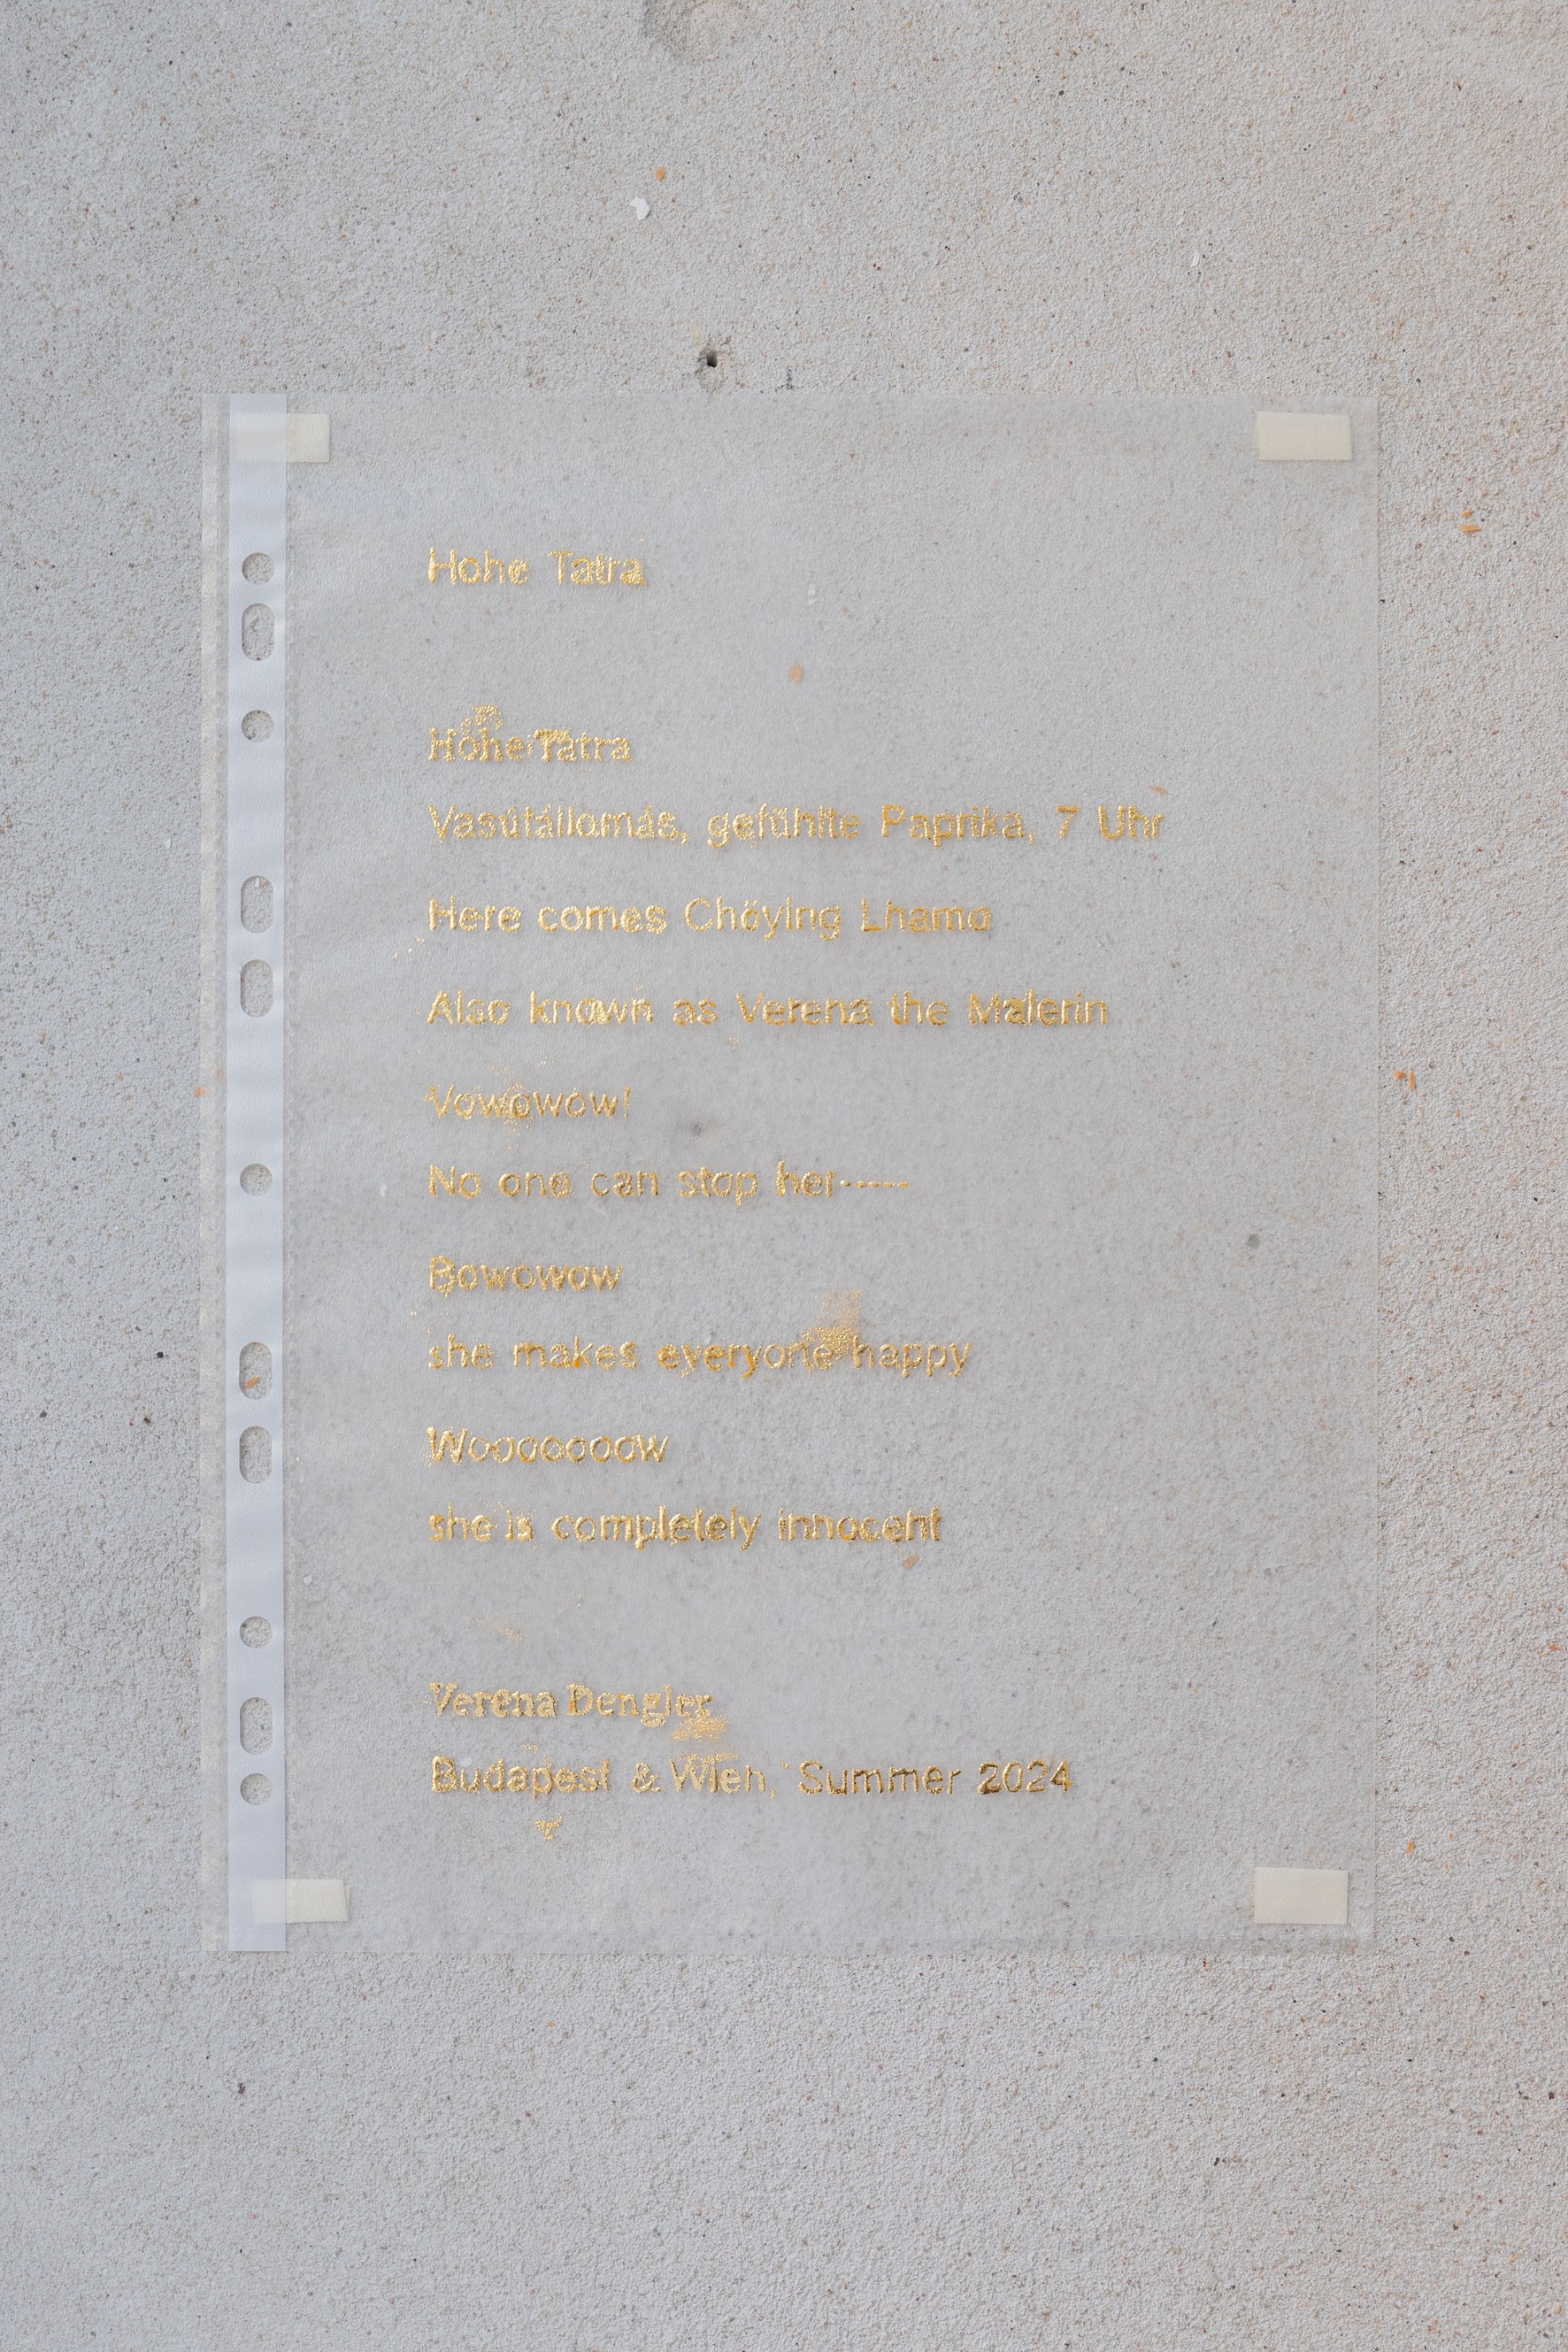 Hohe Tatra
Hohe Tatra
Vasútállomás, gefühlte Paprika, 7 Uhr
Here comes Chöying Lhamo
Also known as Verena the Malerin
Vowowow!
No one can stop her-----
Bowowow
she makes everyone happy
Woooooooow
she is completely innocent
Verena Dengler
Budapest & Wien, Summer 2024